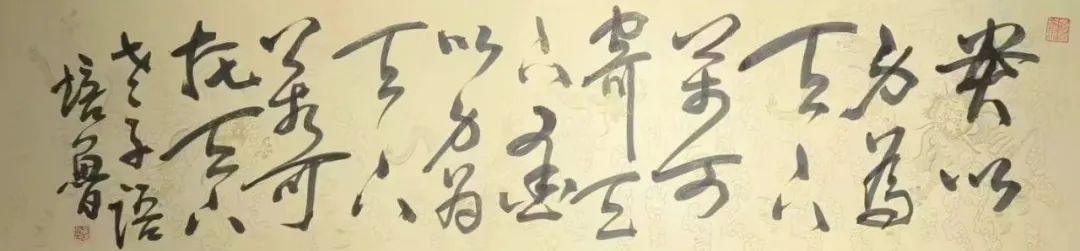 貴以
身為
天下
若可
寄天
下愛
以身为
天下
若可
托天下
老子語
培魯